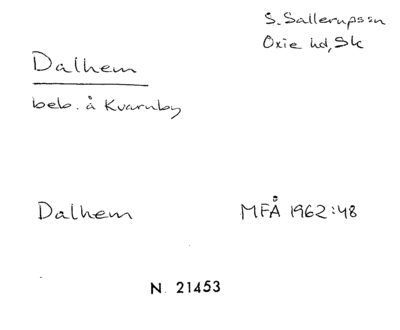 S. Sallerupssn
Oxie hd, Sk
Dalhem
beb. å Kvarnby
Dalhem MFÅ 1962:48
N. 21453